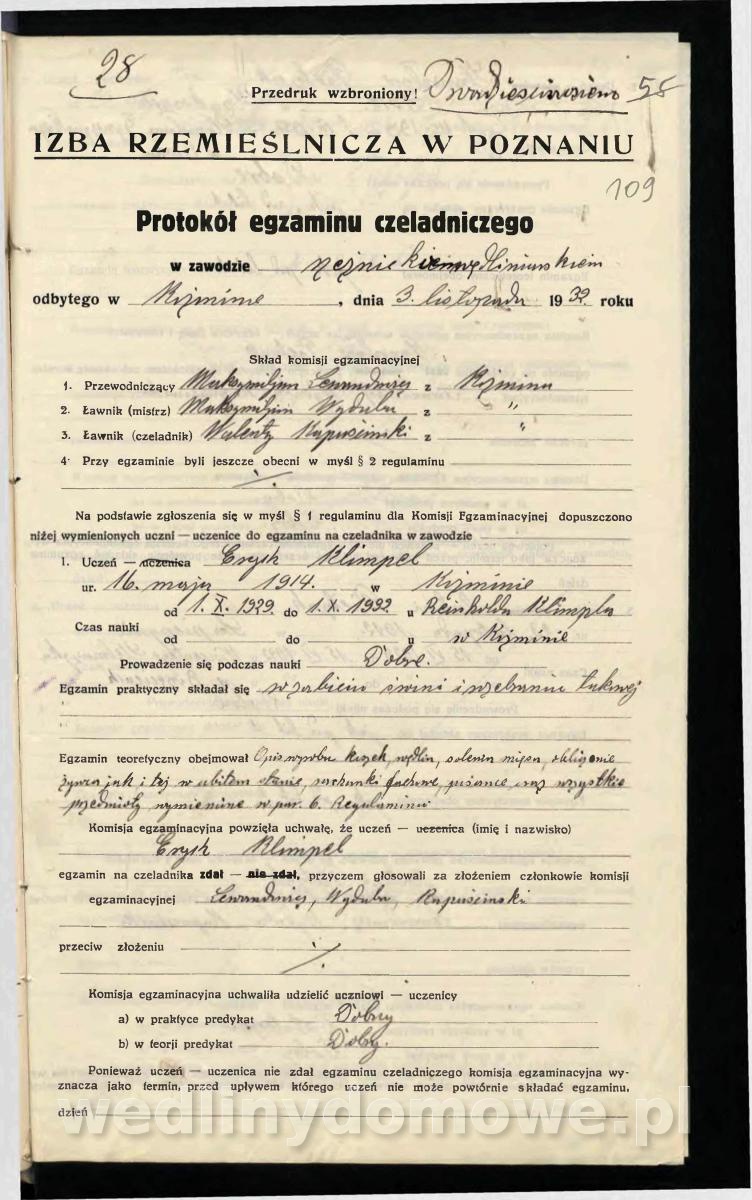 28
Przedruk wzbroniony! 58
IZBA RZEMIEŚLNICZA W POZNANIU
109
Protokół egzaminu czeladniczego
w zawodzie rzeźnickiem wędliniarskiem
odbytego w Koźminie, dnia 3. listopada 1932 roku
Skład komisji egzaminacyjnej
1. Przewodniczący Maksymiljan z Koźmina
2. Ławnik (mistrz) Maksymiljan Wyduba z "
3. Ławnik (czeladnik) Walenty Kapuścinski z "
4. Przy egzaminie byli jeszcze obecni w myśl § 2 regulaminu
·/.
Na podstawie zgłoszenia się w myśl § 1 regulaminu dla Komisji Egzaminacyjnej dopuszczono
niżej wymienionych uczni — uczenice do egzaminu na czeladnika w zawodzie
1. Uczeń — uczenica Eryk Klimpel
ur. 16. maja 1914. w Koźminie
od 1. X. 1929 do 1. X. 1932 u Reinholda Klimpla
Czas nauki
od do u w Koźminie
Prowadzenie się podczas nauki Dobre.
Egzamin praktyczny składał się w zabiciu świni i
Egzamin teoretyczny obejmował Opis wyrobu kiszek, wędlin, solenia mięsa, obliczenie
żywca jak i tej w ubitem stanie, rachunki fachowe, pisanie oraz wszystkie
przedmioty wymienione w par. 6. Regulaminu
Komisja egzaminacyjna powzięła uchwałę, że uczeń — uczenica (imię i nazwisko)
Eryk Klimpel
egzamin na czeladnika zdał — nie zdał, przyczem głosowali za złożeniem członkowie komisji
egzaminacyjnej Wyduba, Kapuścinski
przeciw złożeniu ·/.
Komisja egzaminacyjna uchwaliła udzielić uczniowi — uczenicy
a) w praktyce predykat Dobry
b) w teorji predykat Dobry.
Ponieważ uczeń — uczenica nie zdał egzaminu czeladniczego komisja egzaminacyjna wy-
znacza jako termin, przed upływem którego uczeń nie może powtórnie składać egzaminu,
dzień
wedlinydomowe.pl